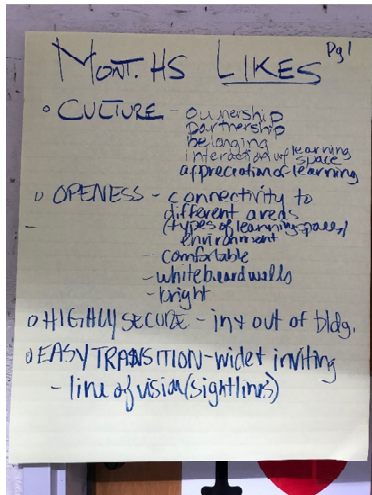 MONT. HS LIKES Pg 1
CULTURE - ownership
partnership
belonging
interaction w/ learning space
appreciation of learning
OPENESS - connectivity to
different areas
(types of learning spaces/
environment
- comfortable
- whiteboard walls
- bright
HIGHLY SECURE - in + out of bldg.
EASY TRANSITION - wide + inviting
- line of vision (sightlines)